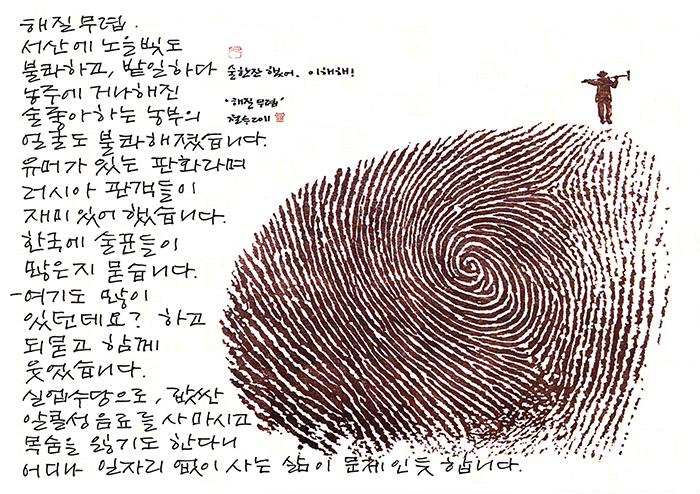 해질 무렵.
서산에 노을빛도
불콰하고, 밭일하다
농주에 거나해진
술좋아하는 농부의
얼굴도 불콰해졌습니다.
유머가 있는 판화라며
러시아 관객들이
재미 있어 했습니다.
한국에 술꾼들이
많은지 묻습니다.
-여기도 많이
있던데요? 하고
되묻고 함께
웃었습니다.
실업수당으로, 값싼
알콜성음료를 사 마시고
목숨을 잃기도 한다니
어디나 일자리 없이 사는 삶이 문제인듯 합니다.
술한잔 했어. 이해해!
"해질 무렵"
철수2011